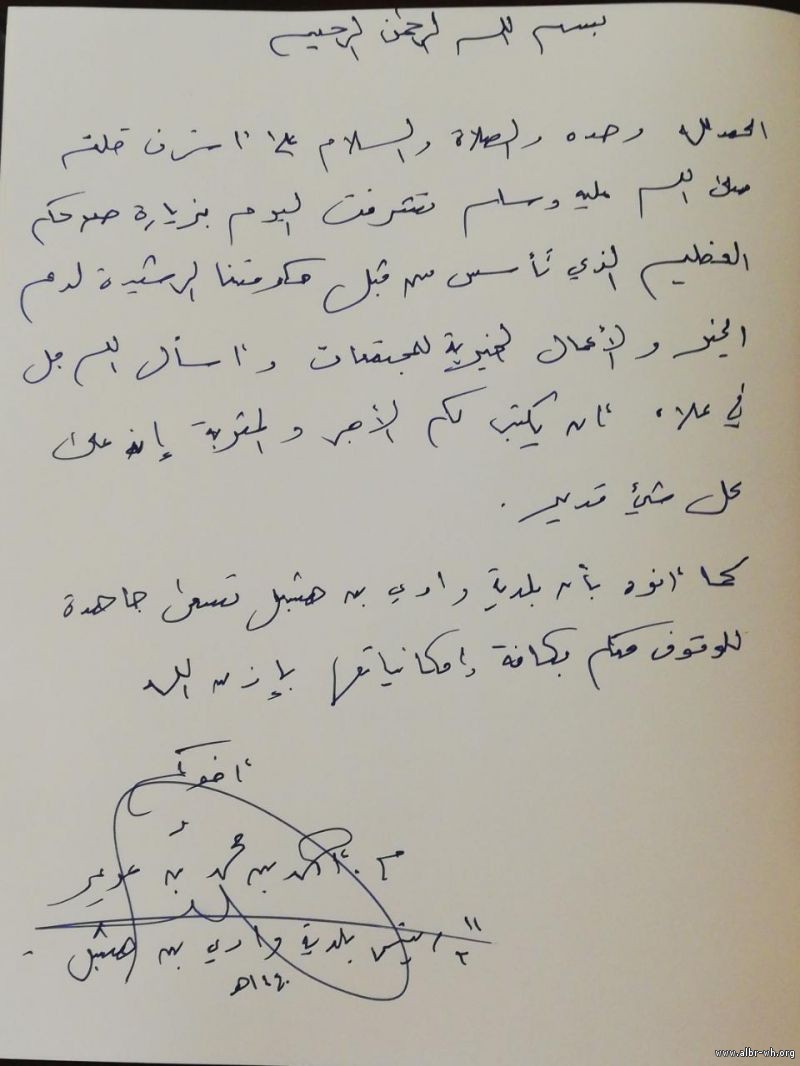 بسم الله الرحمن الرحيم
الحمد لله وحده والصلاة والسلام على اشرف خلقه
صلى الله عليه وسلم تشرفت اليوم بزيارة صرحكم
العظيم الذي تأسس من قبل حكومتنا الرشيدة لدعم
الخير والأعمال الخيرية للمجتمعات واسأل الله جل
في علاه أن يكتب لكم الأجر و المثوبة إنه على
كل شيئ قدير .
كما أنوه بأن بلدية وادي بن هشبل تسعى جاهدة
للوقوف معكم بكافة إمكانياتها بإذن الله
أخوكم
م . بن محمد
رئيس بلدية وادي بن هشبل
١١
٢
١٤٤٠هـ
www.albr-wh.org